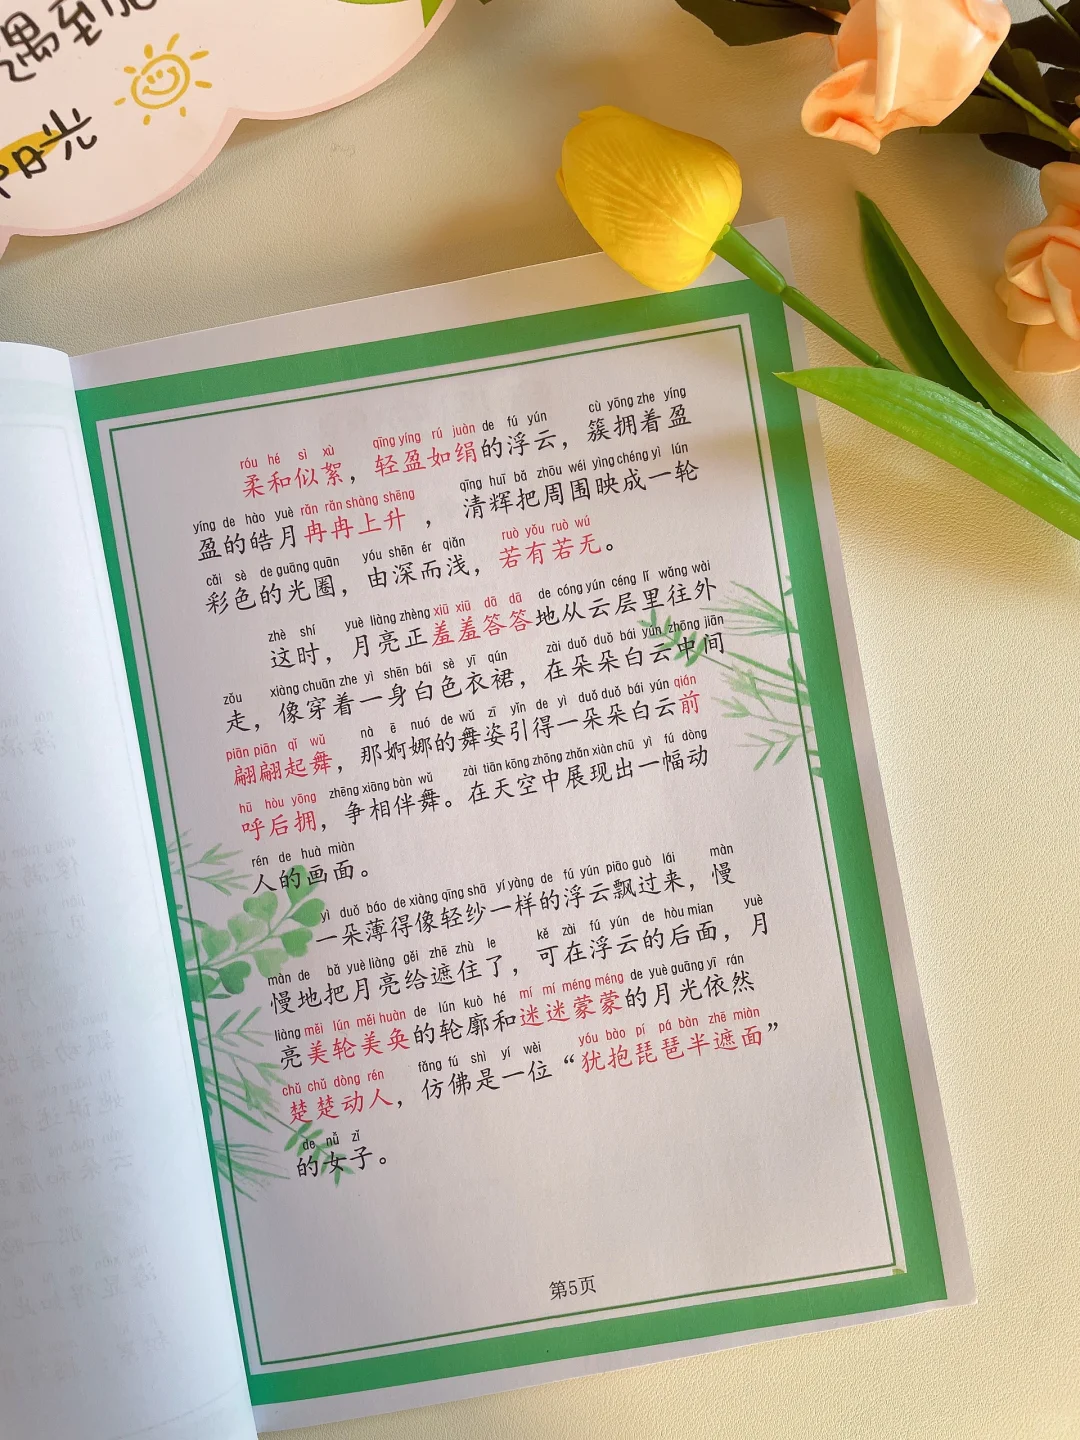 遇至
阳光
róu hé sì xù qīng yíng rú juàn de fú yún cù yōng zhe yíng
柔和似絮，轻盈如绢的浮云，簇拥着盈
yíng de hào yuè rǎn rǎn shàng shēng qīng huī bǎ zhōu wéi yìng chéng yì lún
盈的皓月冉冉上升，清辉把周围映成一轮
cǎi sè de guāng quān yóu shēn ér qiǎn ruò yǒu ruò wú
彩色的光圈，由深而浅，若有若无。
zhè shí yuè liàng zhèng xiū xiū dā dā de cóng yún céng lǐ wǎng wài
这时，月亮正羞羞答答地从云层里往外
zǒu xiàng chuān zhe yì shēn bái sè yī qún zài duǒ duǒ bái yún zhōng jiān
走，像穿着一身白色衣裙，在朵朵白云中间
piān piān qǐ wǔ nà ē nuó de wǔ zī yǐn de yì duǒ duǒ bái yún qián
翩翩起舞，那婀娜的舞姿引得一朵朵白云前
hū hòu yōng zhēng xiāng bàn wǔ zài tiān kōng zhōng zhǎn xiàn chū yì fú dòng
呼后拥，争相伴舞。在天空中展现出一幅动
rén de huà miàn
人的画面。
yì duǒ báo de xiàng qīng shā yí yàng de fú yún piāo guò lái màn
一朵薄得像轻纱一样的浮云飘过来，慢
màn de bǎ yuè liàng gěi zhē zhù le kě zài fú yún de hòu mian yuè
慢地把月亮给遮住了，可在浮云的后面，月
liàng měi lún měi huàn de lún kuò hé mí mí méng méng de yuè guāng yī rán
亮美轮美奂的轮廓和迷迷蒙蒙的月光依然
chǔ chǔ dòng rén fǎng fú shì yí wèi yóu bào pí pá bàn zhē miàn
楚楚动人，仿佛是一位“犹抱琵琶半遮面”
de nǚ zǐ
的女子。
第5页